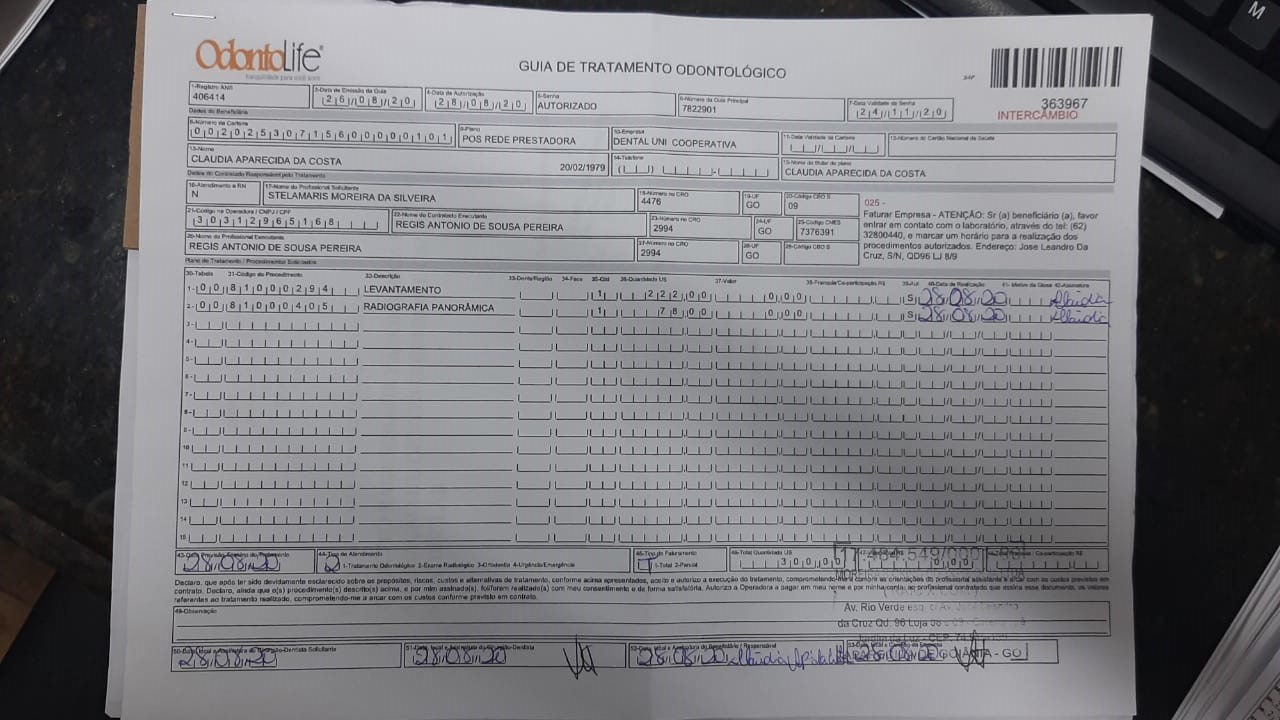 OdontoLife
GUIA DE TRATAMENTO ODONTOLÓGICO
363967
INTERCÂMBIO
1-Registro ANS
406414
3-Data de Emissão da Guia
26/08/20
4-Data de Autorização
28/08/20
5-Senha
AUTORIZADO
6-Número da Guia Principal
7822901
7-Data Validade da Senha
24/11/20
Dados do Beneficiário
8-Número da Carteira
00202530715600000101
9-Plano
POS REDE PRESTADORA
10-Empresa
DENTAL UNI COOPERATIVA
11-Data Validade da Carteira
12-Número do Cartão Nacional de Saúde
13-Nome
CLAUDIA APARECIDA DA COSTA
20/02/1979
14-Telefone
15-Nome do titular do plano
CLAUDIA APARECIDA DA COSTA
Dados do Contratado Responsável pelo Tratamento
16-Atendimento a RN
N
17-Nome do Profissional Solicitante
STELAMARIS MOREIRA DA SILVEIRA
18-Número no CRO
4476
19-UF
GO
20-Código CBO S
09
21-Código na Operadora / CNPJ / CPF
30312965168
22-Nome do Contratado Executante
REGIS ANTONIO DE SOUSA PEREIRA
23-Número no CRO
2994
24-UF
GO
25-Código CNES
7376391
26-Nome do Profissional Executante
REGIS ANTONIO DE SOUSA PEREIRA
27-Número no CRO
2994
28-UF
GO
29-Código CBO S
025 -
Faturar Empresa - ATENÇÃO: Sr (a) beneficiário (a), favor
entrar em contato com o laboratório, através do tel: (62)
32800440, e marcar um horário para a realização dos
procedimentos autorizados. Endereço: Jose Leandro Da
Cruz, S/N, QD96 LJ 8/9
Plano de Tratamento / Procedimentos Solicitados
30-Tabela 31-Código do Procedimento 32-Descrição 33-Dente/Região 34-Face 35-Qtd 36-Quantidade US 37-Valor 38-Franquia/Co-participação R$ 39-Aut 40-Data de Realização 41- Motivo da Glosa 42-Assinatura
1- 00 81000294 LEVANTAMENTO 1 222,00 0,00 S 28/08/20 Claudia
2- 00 81000405 RADIOGRAFIA PANORÂMICA 1 78,00 0,00 S 28/08/20 Claudia
3-
4-
5-
6-
7-
8-
9-
10
11
12
13
14
15
43-Data Previsão Término do Tratamento
28/08/20
44-Tipo de Atendimento
1-Tratamento Odontológico 2-Exame Radiológico 3-Ortodontia 4-Urgência/Emergência
45-Tipo de Faturamento
1-Total 2-Parcial
46-Total Quantidade US
300,00
0,00
Declaro, que após ter sido devidamente esclarecido sobre os propósitos, riscos, custos e alternativas de tratamento, conforme acima apresentados, aceito e autorizo a execução do tratamento, comprometendo-me a cumprir as orientações do profissional assistente e arcar com os custos previstos em
contrato. Declaro, ainda que o(s) procedimento(s) descrito(s) acima, e por mim assinado(s), foi/foram realizado(s) com meu consentimento e de forma satisfatória. Autorizo a Operadora a pagar em meu nome e por minha conta, ao profissional contratado que assina esse documento, os valores
referentes ao tratamento realizado, comprometendo-me a arcar com os custos conforme previsto em contrato.
49-Observação
Av. Rio Verde esq. c/ Av. José Leandro
da Cruz Qd. 96 Loja 08
50-Data, local e Assinatura do Cirurgião-Dentista Solicitante
28/08/20
51-Data, local e Assinatura do Cirurgião-Dentista
28/08/20
52-Data, local e Assinatura do Beneficiário / Responsável
28/08/20 Claudia
28/08/20
GOIÂNIA - GO